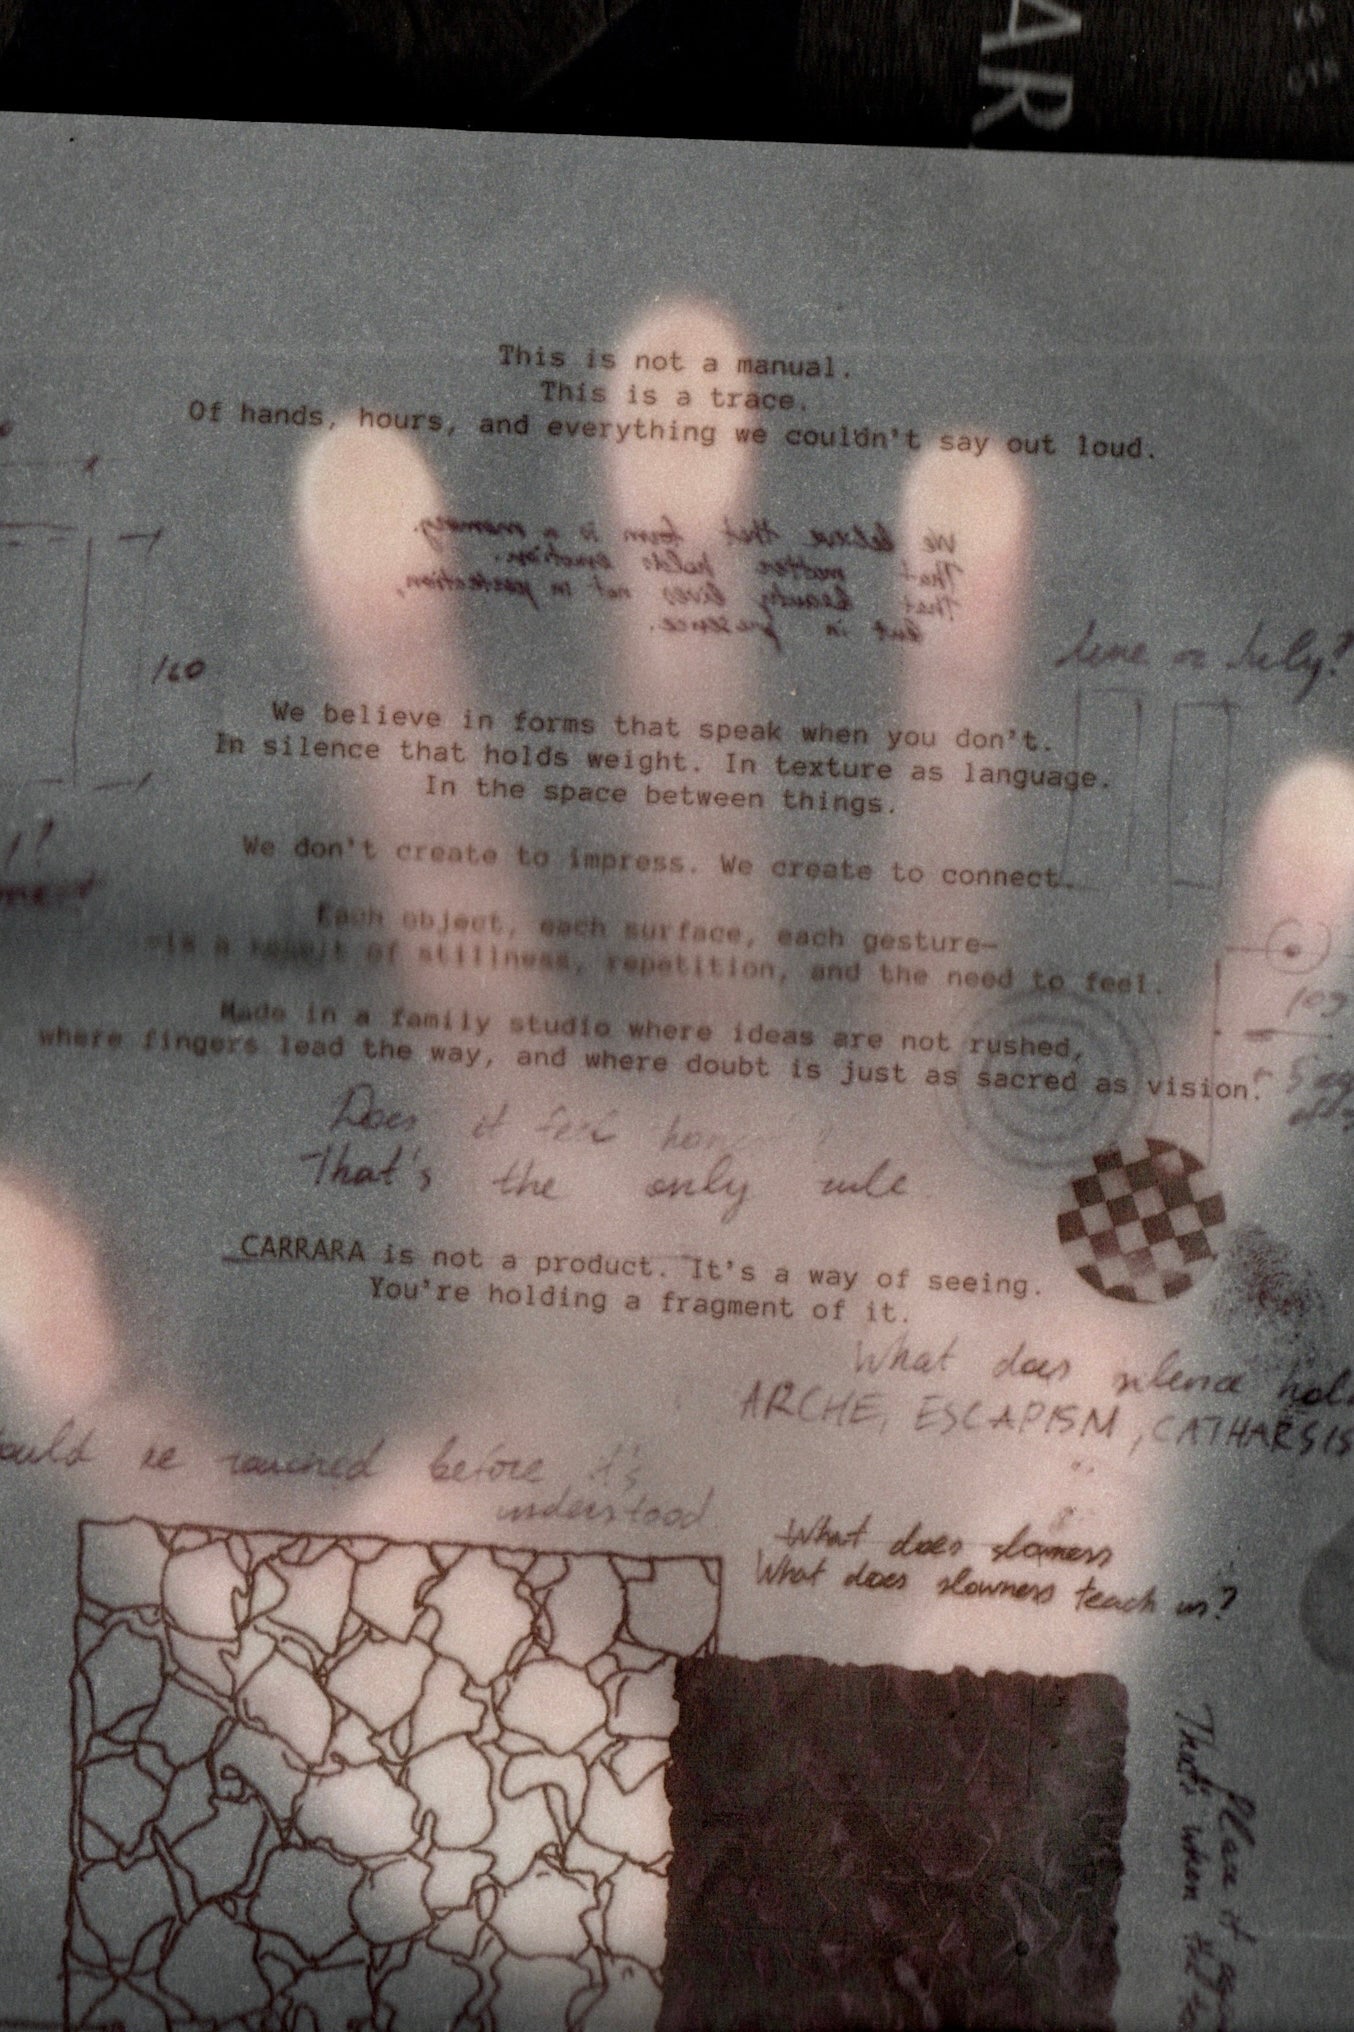 AR
This is not a manual.
This is a trace.
Of hands, hours, and everything we couldn't say out loud.
We believe that form is a memory.
That matter holds emotion.
That beauty lives not in perfection,
but in presence.
160
June or July?
We believe in forms that speak when you don't.
In silence that holds weight. In texture as language.
In the space between things.
We don't create to impress. We create to connect.
Each object, each surface, each gesture—
—is a result of stillness, repetition, and the need to feel.
109
Made in a family studio where ideas are not rushed,
where fingers lead the way, and where doubt is just as sacred as vision.
Does it feel
That's the only rule
CARRARA is not a product. It's a way of seeing.
You're holding a fragment of it.
What does silence
ARCHE, ESCAPISM, CATHARSIS
before it's
understood.
What does slowness
What does slowness teach us?
Place it
That's when the